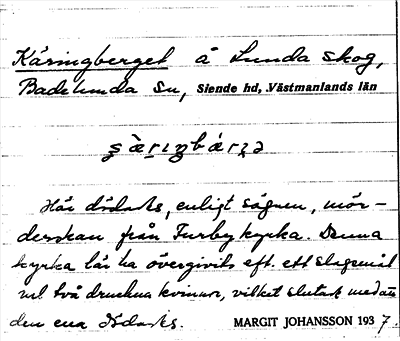 Käringberget å Lunda skog,
Badelunda Sn, Siende hd, Västmanlands län
Här dödades, enligt sägnen, mör-
derskan från Turby kyrka. Denna
kyrka lär ha övergivits eft. ett slagsmål
ml. två druckna kvinnor, vilket slutade med att
den ena dödades. MARGIT JOHANSSON 1937.